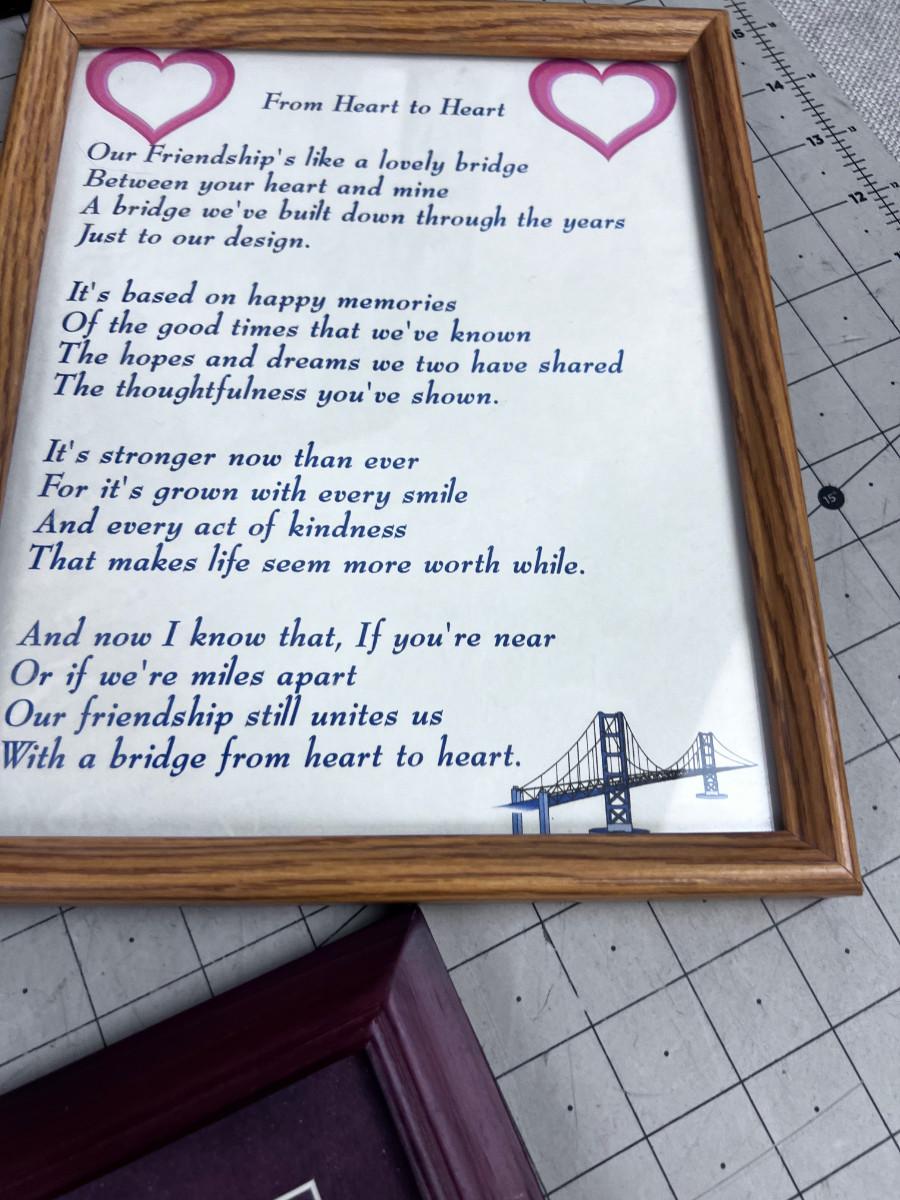 From Heart to Heart
Our Friendship's like a lovely bridge
Between your heart and mine
A bridge we've built down through the years
Just to our design.
It's based on happy memories
Of the good times that we've known
The hopes and dreams we two have shared
The thoughtfulness you've shown.
It's stronger now than ever
For it's grown with every smile
And every act of kindness
That makes life seem more worth while.
And now I know that, If you're near
Or if we're miles apart
Our friendship still unites us
With a bridge from heart to heart.
15
14
13
12
15°